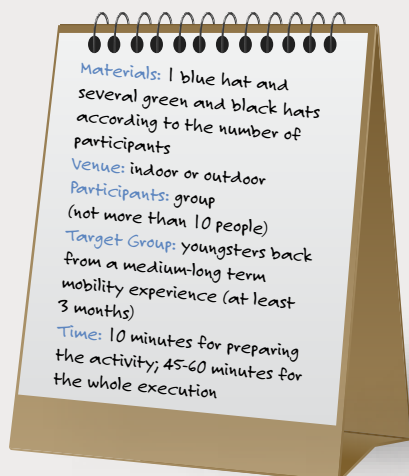 Materials: 1 blue hat and
several green and black hats
according to the number of
participants
Venue: indoor or outdoor
Participants: group
(not more than 10 people)
Target Group: youngsters back
from a medium-long term
mobility experience (at least
3 months)
Time: 10 minutes for preparing
the activity; 45-60 minutes for
the whole execution